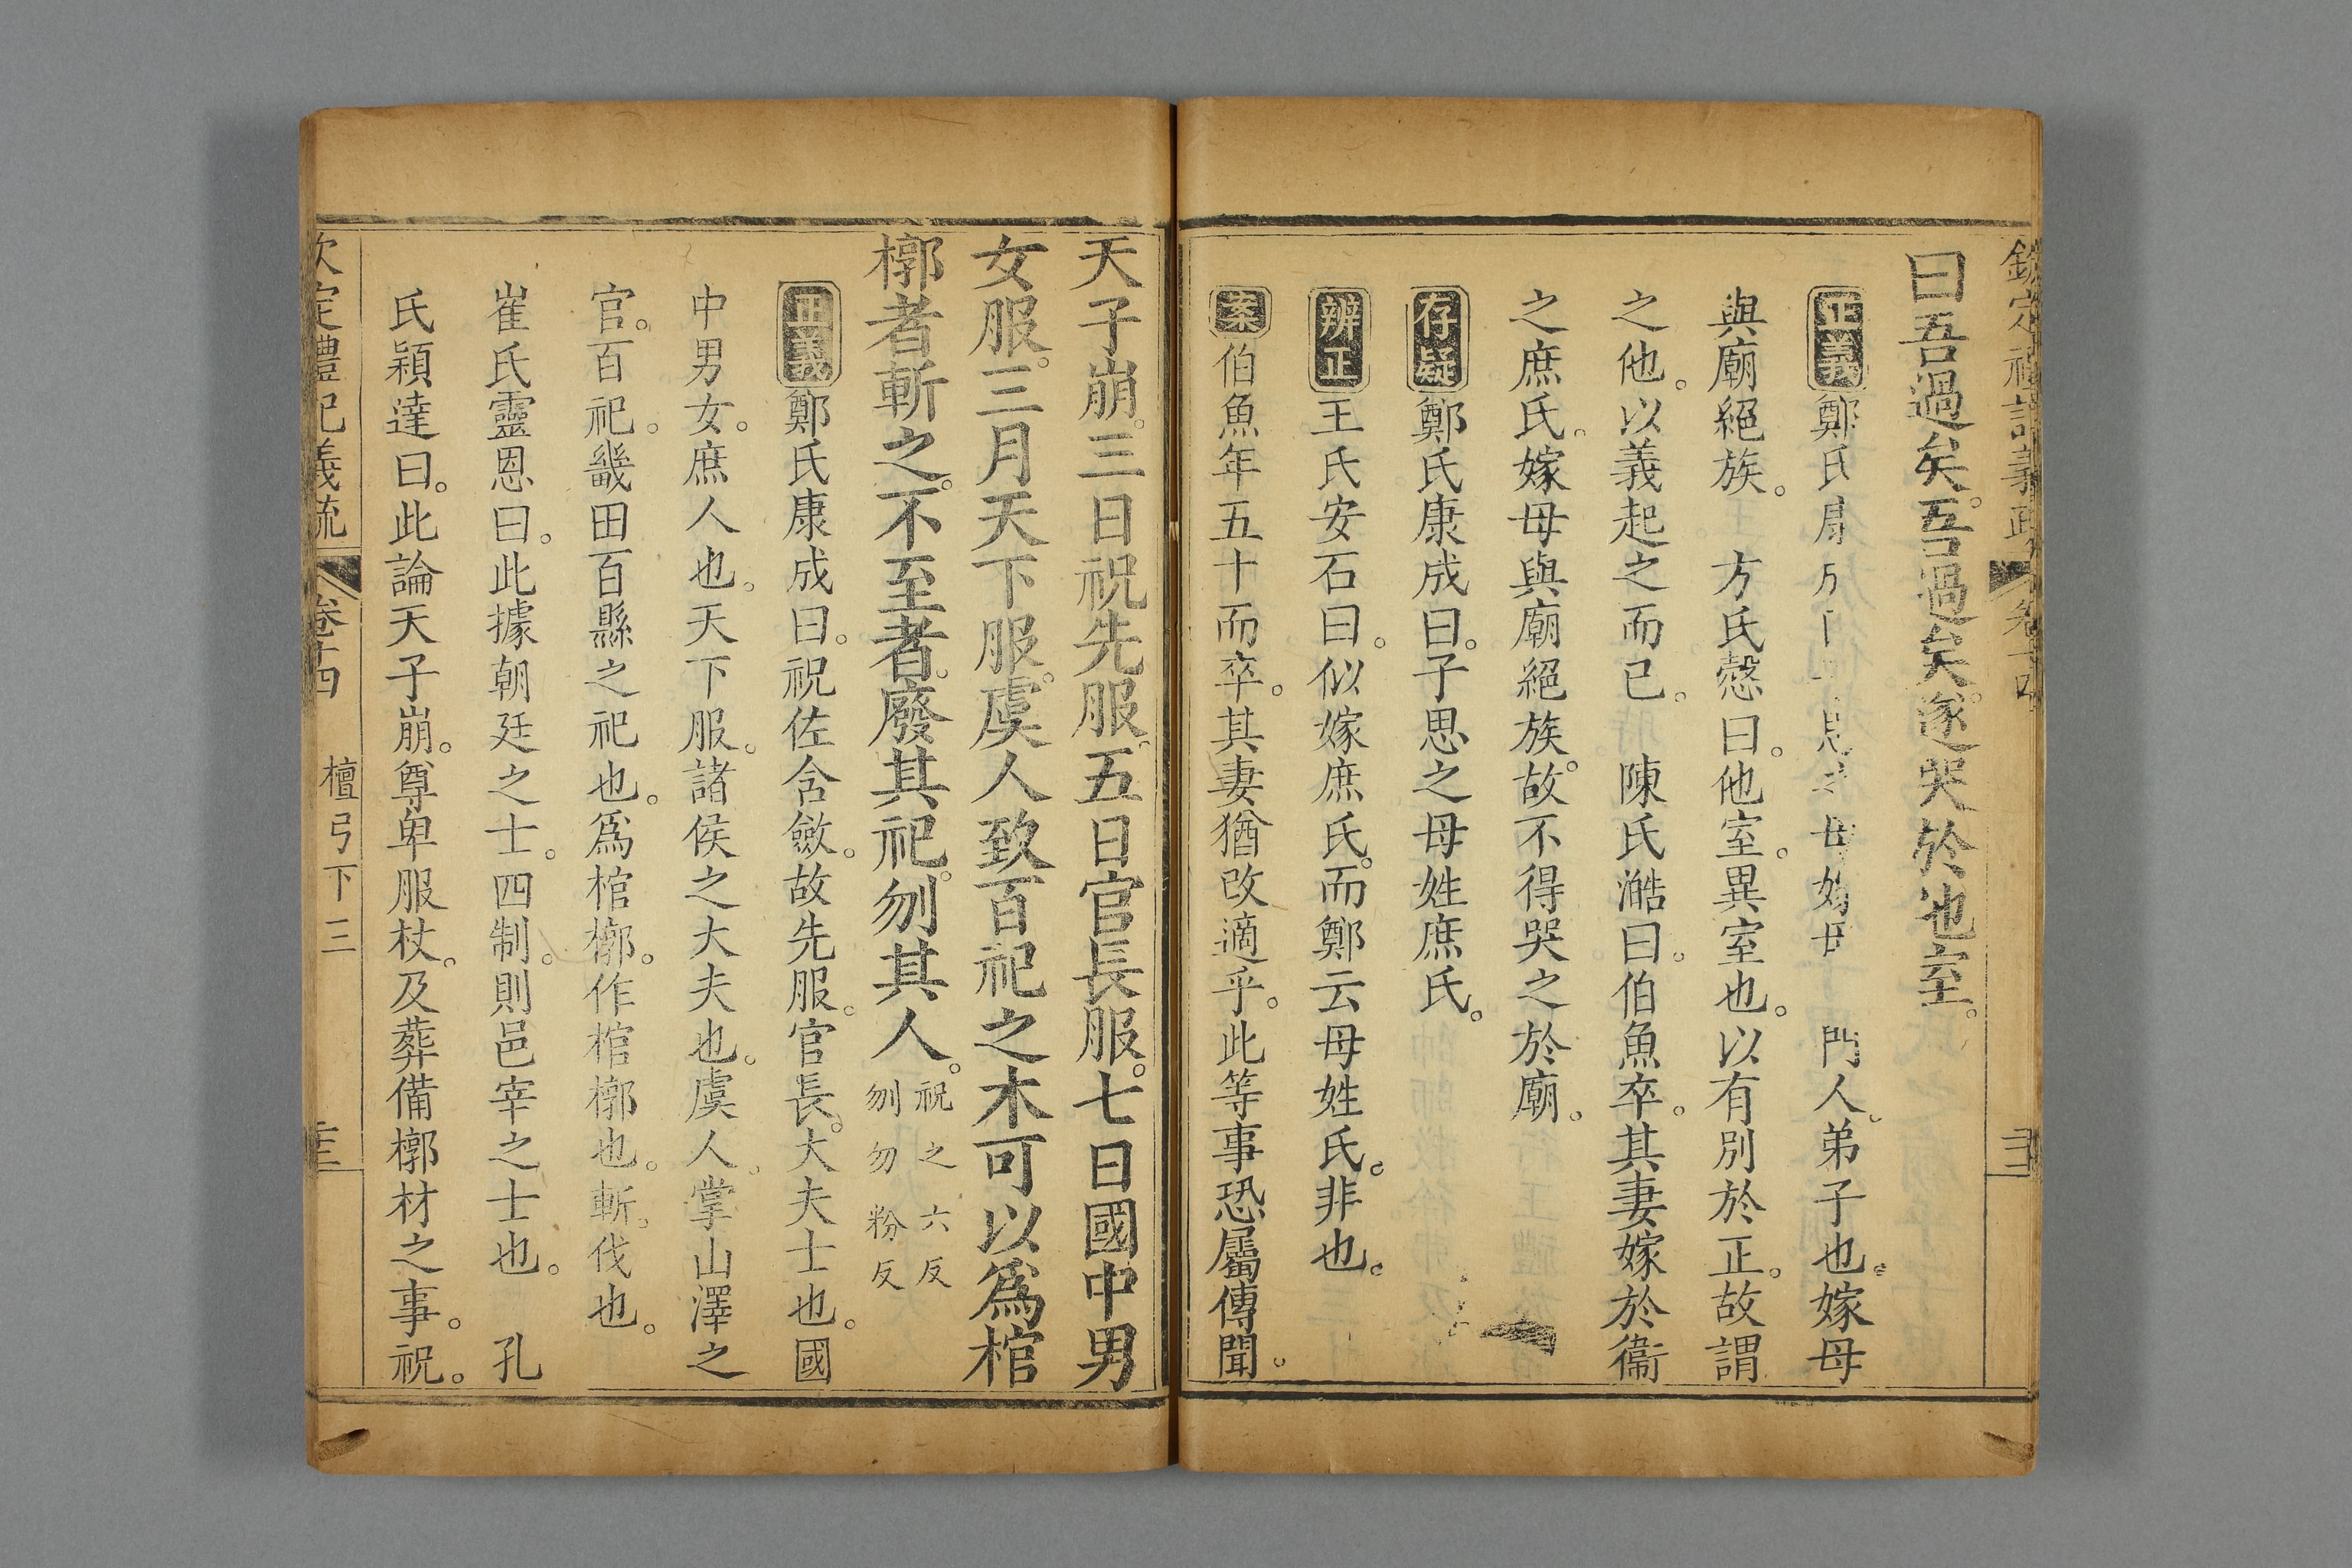 曰吾過矣。吾過矣。遂哭於他室。
正義鄭氏 母 門人。弟子也。嫁母
與廟絕族。 方氏慤曰。他室。異室也。以有別於正。故謂
之他。以義起之而已。 陳氏澔曰。伯魚卒。其妻嫁於衞
之庶氏。嫁母與廟絕族。故不得哭之於廟。
存疑鄭氏康成曰。子思之母姓庶氏。
辨正王氏安石曰。似嫁庶氏。而鄭云母姓氏。非也。
案伯魚年五十而卒。其妻猶改適乎。此等事恐屬傳聞。
天子崩。三日祝先服。五日官長服。七日國中男
女服。三月天下服。虞人致百祀之木可以爲棺
槨者斬之。不至者。廢其祀。刎其人。祝之六反
刎勿粉反
正義鄭氏康成曰。祝佐含斂。故先服。官長。大夫士也。國
中男女。庶人也。天下服。諸侯之大夫也。虞人。掌山澤之
官。百祀。畿田百縣之祀也。爲棺槨。作棺槨也。斬。伐也。
崔氏靈恩曰。此據朝廷之士。四制。則邑宰之士也。 孔
氏穎達曰。此論天子崩。尊卑服杖。及葬備槨材之事。祝。
欽定禮記義疏 卷十四 檀弓下三